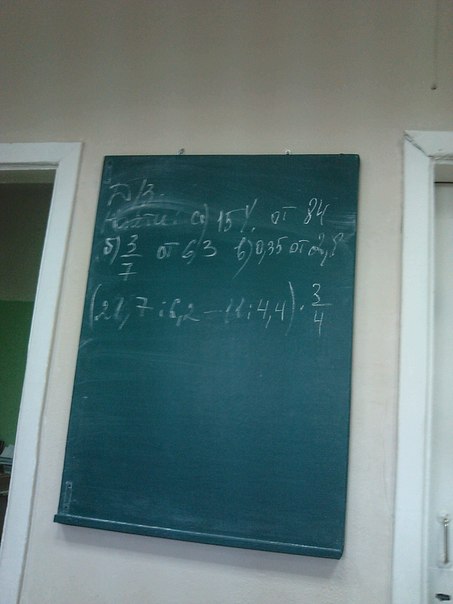 Д/З.
Найти: а) 15% от 84
б) 3/7 от 6,3 в) 0,35 от 2,8
(21,7 : 6,2 – 11 : 4,4) · 3/4